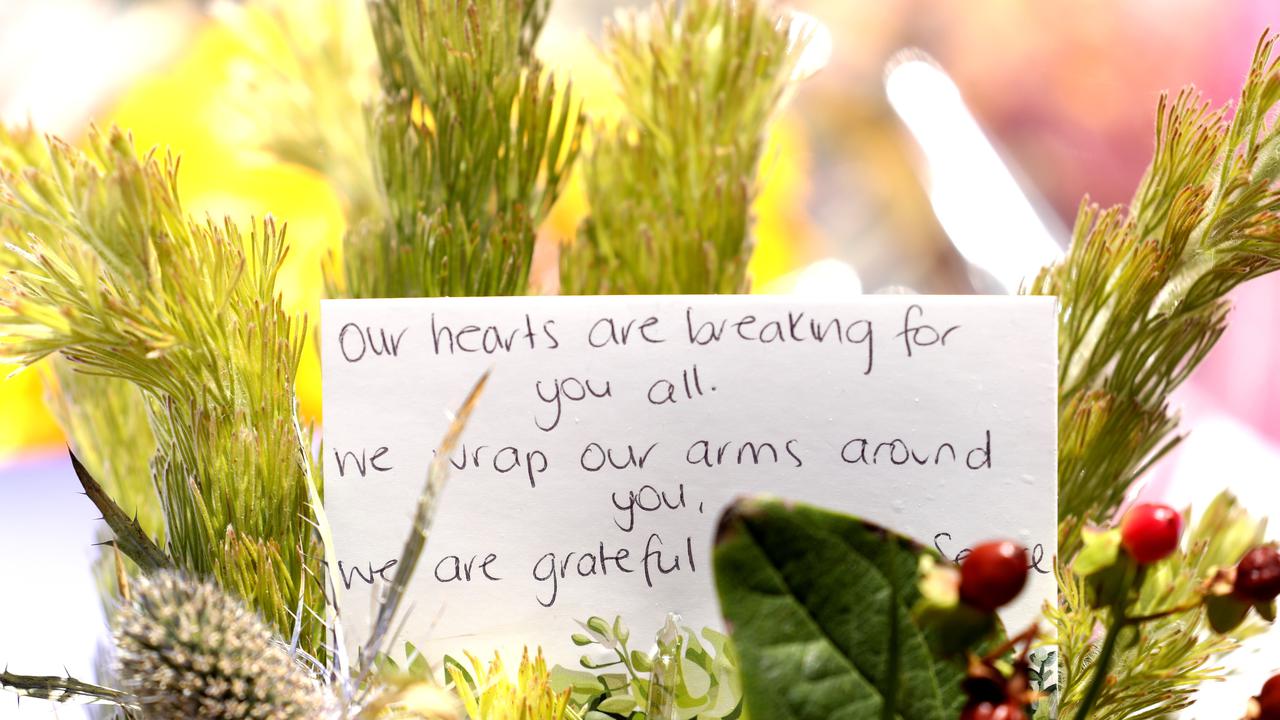 Our hearts are breaking for
you all.
we wrap our arms around
you,
we are grateful